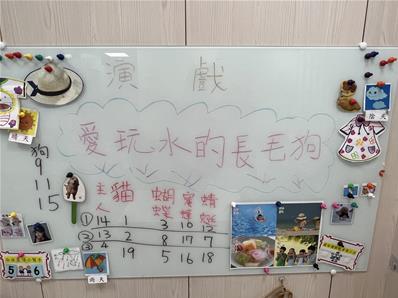 演 戲
愛玩水的長毛狗
狗
9
11
15
主人 貓 蝴蝶 蜜蜂 蜻蜓
① 14 1 3 10 12
② 13 2 8 17 7
③ 4 19 5 16 18
晴天
陰天
雨天
5 6